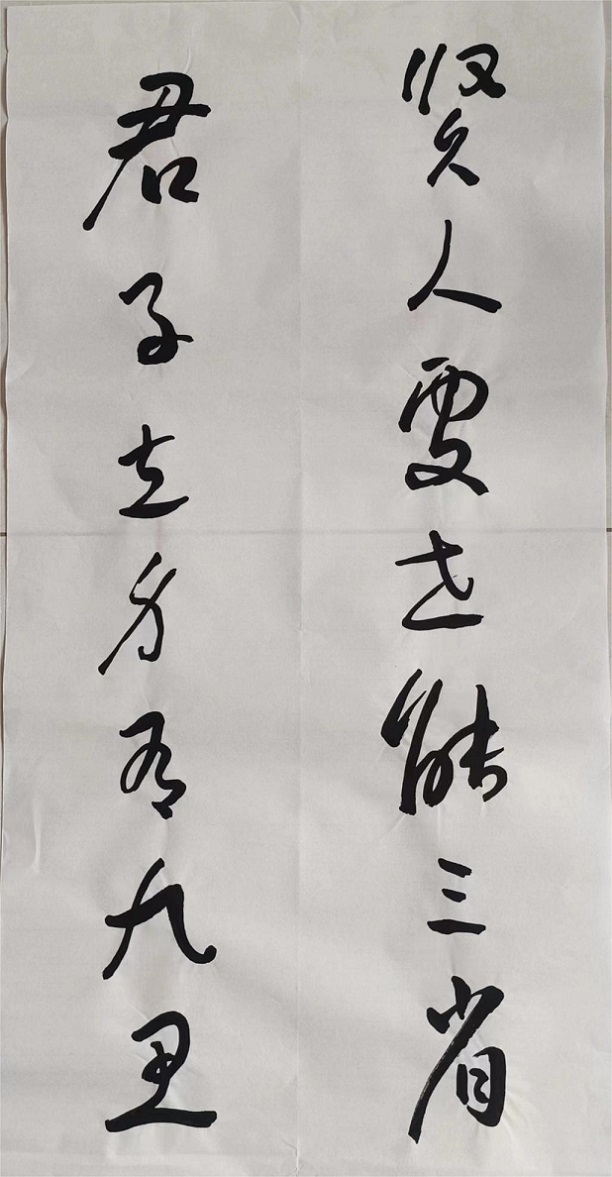 贤人处世能三省
君子立身有九思